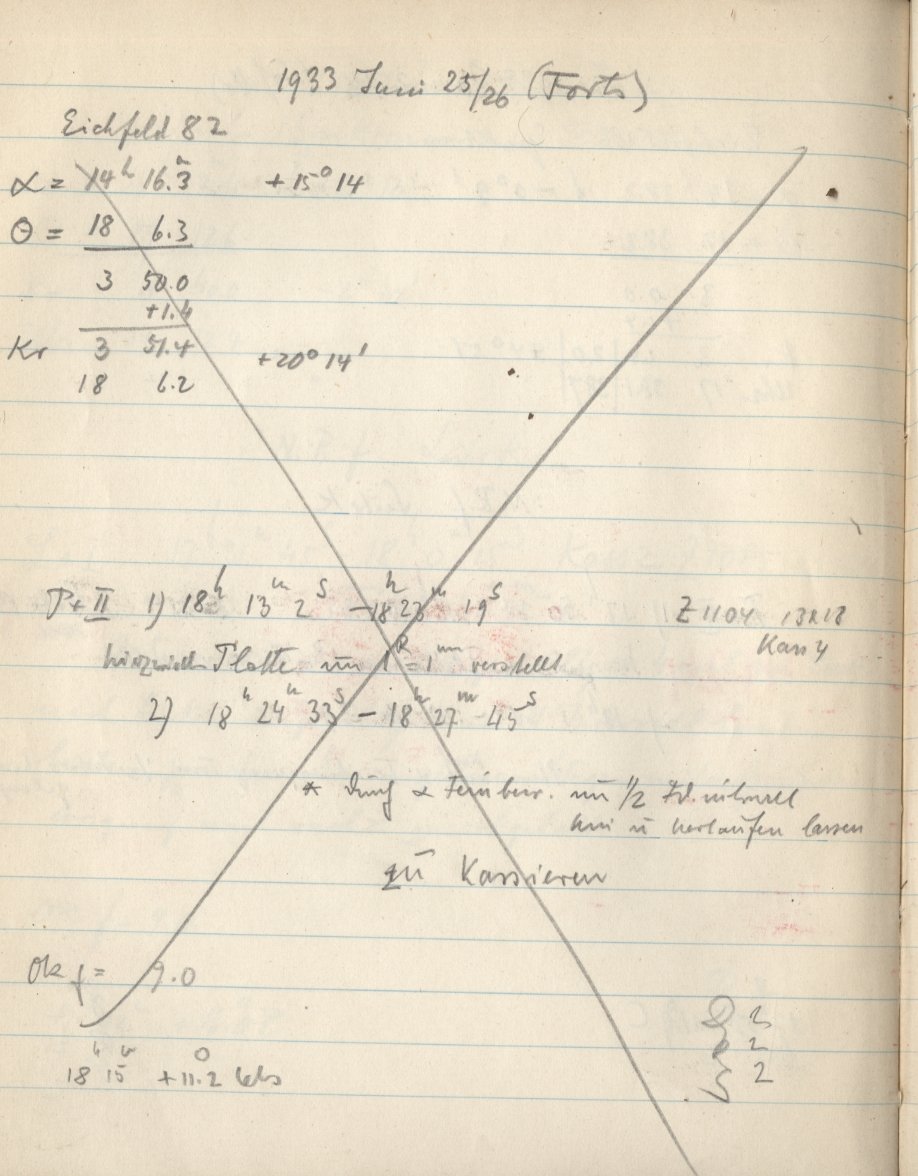 1933 Juni 25/26 (Forts)
Eichfeld 82
α = 14h 16.m3 +15° 14
θ = 18 6.3
3 50.0
+1.4
Kr 3 51.4 +20° 14'
18 6.2
P+II 1) 18h 13m 2s – 18h 23m 19s Z 1104 13x18
Platte um 1R = 1mm verstellt
2) 18h 24m 33s – 18h 27m 45s
* durch α Feinbew. um 1/2
hin u herlaufen lassen
zu Kassieren
Ok f = 9.0
18h 15m +11.°2
2
2
2